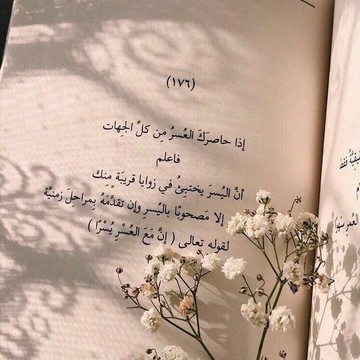 (١٧٦)
إذا حاصرَكَ العُسرُ مِن كلّ الجِهات
فاعلم
أنَّ اليُسرَ يختبِئُ في زوايا قريبَة مِنك
إلا مَصحوبًا باليُسرِ وإن تقدَّمَهُ بِمراحلَ زمنيَّة
لقوله تعالى ( إنَّ مَعَ العُسْرِ يُسْرًا )
فقط
العمر